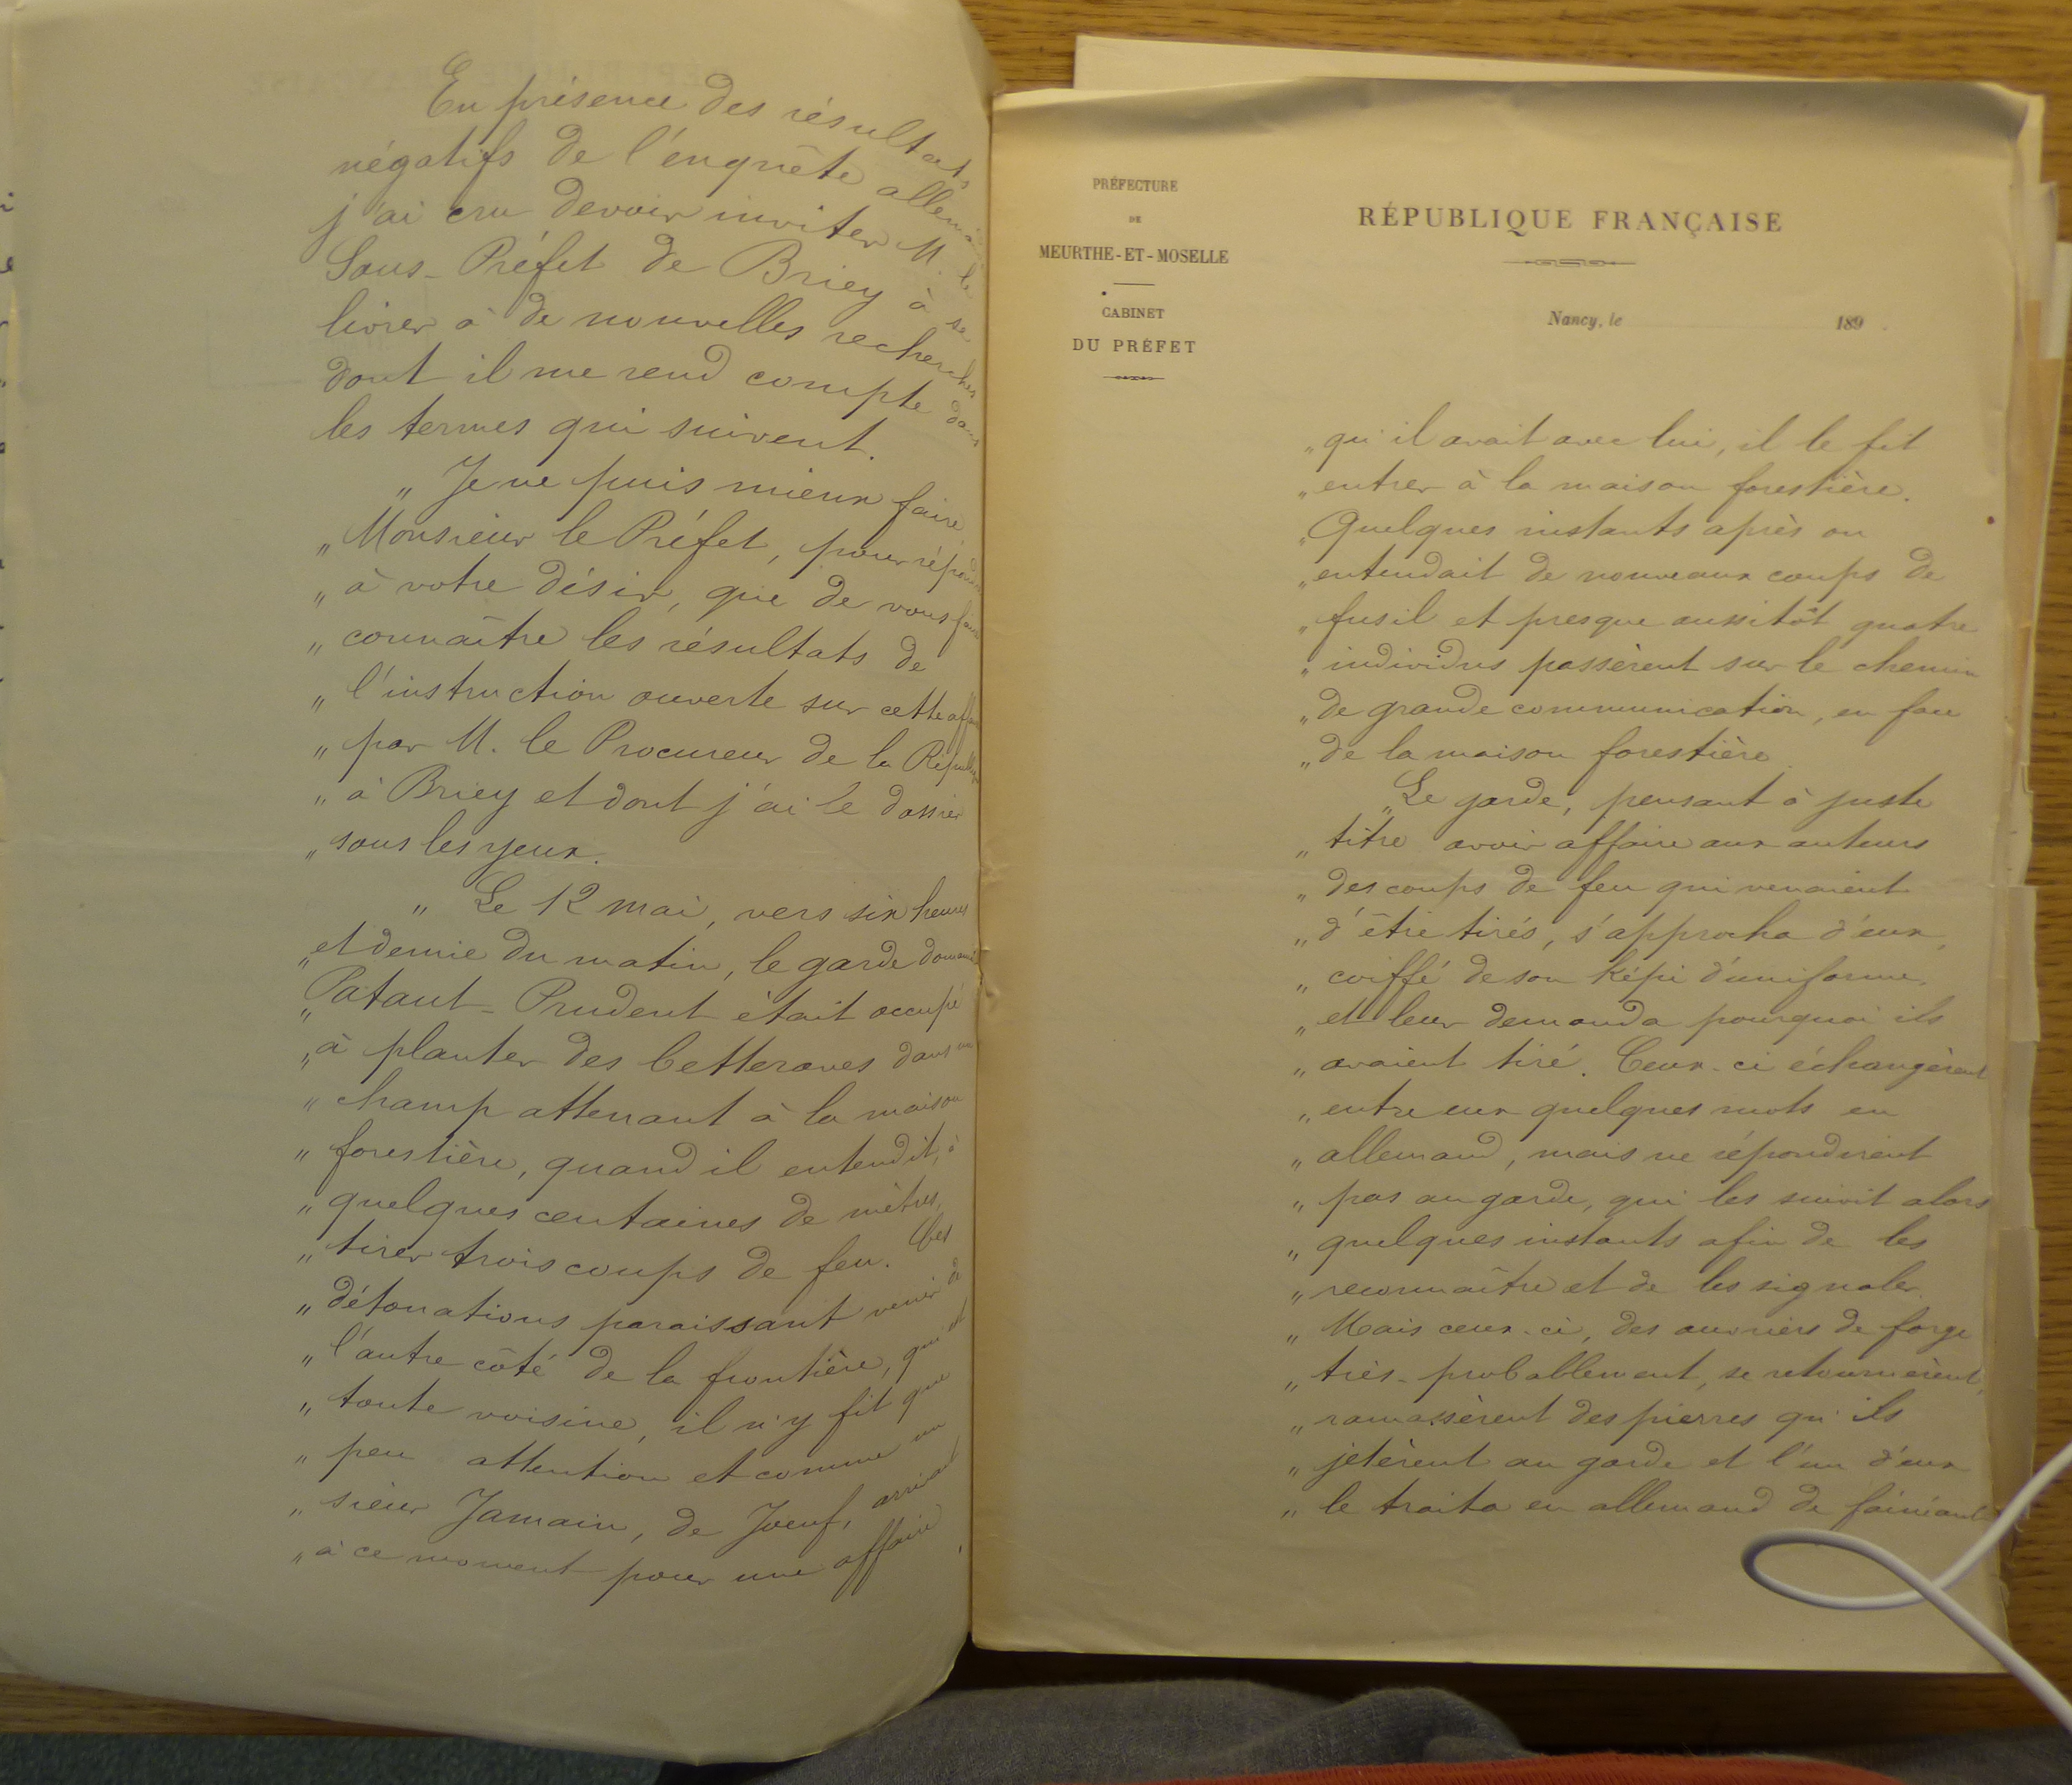 En présence des résultats
négatifs de l'enquête
j'ai cru devoir inviter M. le
Sous-Préfet de Briey à se
livrer à de nouvelles recherches
dont il me rend compte dans
les termes qui suivent.
„ Je ne puis mieux faire,
„ Monsieur le Préfet, pour répondre
„ à votre désir, que de vous faire
„ connaître les résultats de
„ l'instruction ouverte sur cette affaire
„ par M. le Procureur de la République
„ à Briey et dont j'ai le dossier
„ sous les yeux.
„ Le 12 mai, vers six heures
„ et demie du matin, le garde domanial
„ Pataut-Prudent était occupé
„ à planter des betteraves dans un
„ champ attenant à la maison
„ forestière, quand il entendit, à
„ quelques centaines de mètres,
„ tirer trois coups de feu. Ces
„ détonations paraissant venir de
„ l'autre côté de la frontière, qui est
„ toute voisine, il n'y fit que
„ peu attention et comme un
„ sieur Jamain, de Joeuf, arrivait
„ à ce moment pour une affaire
PRÉFECTURE
DE
MEURTHE-ET-MOSELLE
CABINET
DU PRÉFET
RÉPUBLIQUE FRANÇAISE
Nancy, le 189
„ qu'il avait avec lui, il le fit
„ entrer à la maison forestière.
„ Quelques instants après on
„ entendait de nouveaux coups de
„ fusil et presque aussitôt quatre
„ individus passèrent sur le chemin
„ de grande communication, en face
„ de la maison forestière.
„ Le garde, pensant à juste
„ titre avoir affaire aux auteurs
„ des coups de feu qui venaient
„ d'être tirés, s'approcha d'eux,
„ coiffé de son képi d'uniforme,
„ et leur demanda pourquoi ils
„ avaient tiré. Ceux-ci échangèrent
„ entre eux quelques mots en
„ allemand, mais ne répondirent
„ pas au garde, qui les suivit alors
„ quelques instants afin de les
„ reconnaître et de les signaler.
„ Mais ceux-ci, des ouvriers de forge
„ très-probablement, se retournèrent,
„ ramassèrent des pierres qu'ils
„ jetèrent au garde et l'un d'eux
„ le traita en allemand de fainéant